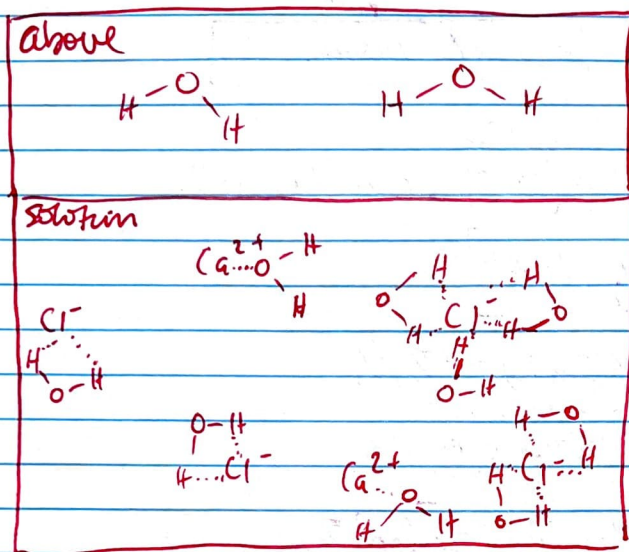 above
O O
H H H H
solution
Ca²⁺ O H
H
O H H
H Cl⁻ H O
H
O-H
Cl⁻
H H
O
O-H
H Cl⁻
Ca²⁺
O
H H
H-O
H Cl⁻ H
O-H